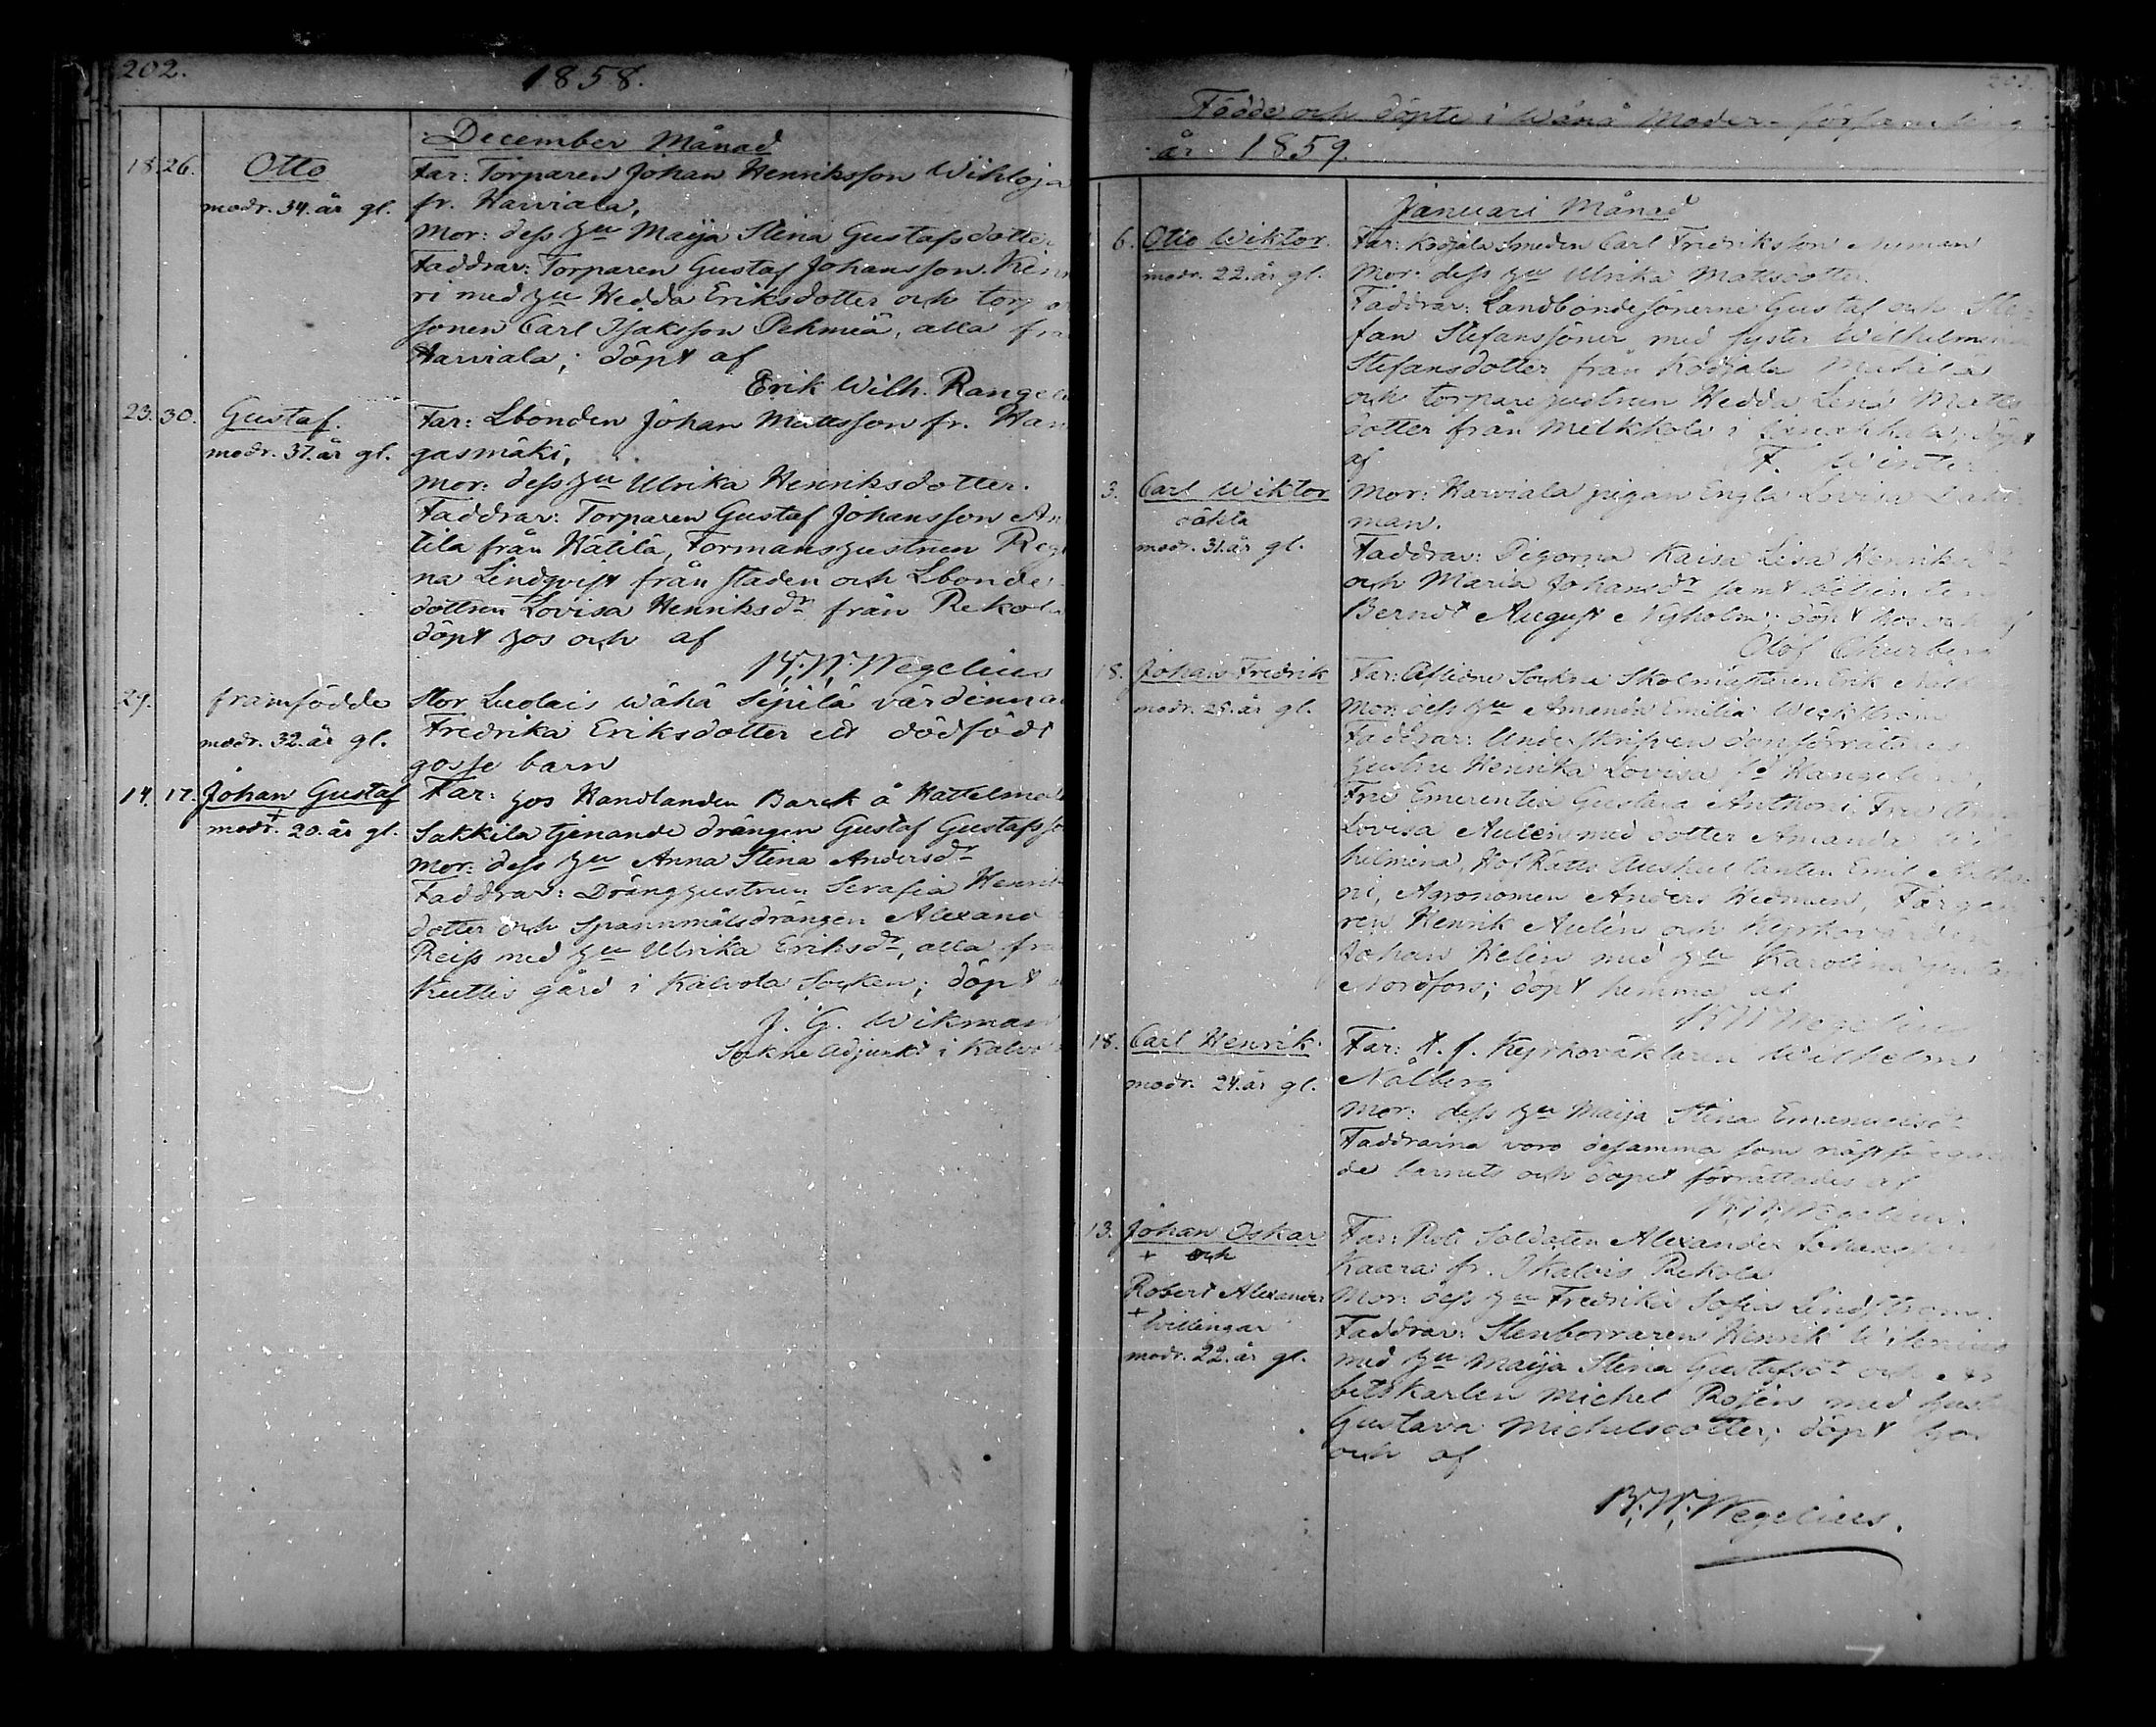 202.
1858.
December Månad
18. 26. Otto
modr. 34. år gl.
Far: Torparen Johan Henriksson Wikloja
fr. Harviala,
Mor: dess hu Maija Stina Gustafsdotter
Faddrar: Torparen Gustaf Johansson
ri med hu Hedda Eriksdotter och torp
sonen Carl Isaksson Pehmiä, alla frå
Harviala; döpt af
Erik Wilh. Rangel
23. 30. Gustaf.
modr. 37. år gl.
Far: Lbonden Johan Mattsson fr. Han
gasmäki,
Mor: dess hu Ulrika Henriksdotter.
Faddrar: Torparen Gustaf Johansson An
tila från Hätilä, Formanshustrun Regi
na Lindqvist från staden och Lbonde
dottren Lovisa Henriksdr från Rekola
döpt hos och af
B. W. Wegelius
29. framfödde
modr. 32. år gl.
Stor Luolais Wähä Sipilä värdinnan
Fredrika Eriksdotter ett dödfödt
gosse barn
14. 17. Johan Gustaf
+
modr. 20. år gl.
Far: hos Handlanden Barck å Hattelmala
Sakkila tjenande drängen Gustaf Gustafsso
Mor: dess hu Anna Stina Andersdr
Faddrar: Dränghustrun Serafia Henriks
dotter och Spannmålsdrängen Alexand
Reiss med hu Ulrika Eriksdr, alla frå
Kuttis gård i Kalvola Socken; döpt
J. G. Wikman
Sockne Adjunkt i Kalvo
203.
Födde och döpte i Wånå Moder-församling
år 1859.
Januari Månad
6. Otto Wiktor.
modr. 22. år gl.
Far: Kodjala Smeden Carl Fredriksson Numan
Mor: dess hu Ulrika Mattsdotter.
Faddrar: Landbondesönerne Gustaf och Ste
fan Stefanssöner med syster Wilhelmina
Stefansdotter från Kodjala
och torparehustrun Hedda Lena Matts
dotter från Melkkola i döpt
af F. Winter
3. Carl Wiktor
oäkta
modr. 31. år gl.
Mor: Harviala pigan Engla Lovisa
man.
Faddrar: Pigorna Kaisa Lisa Henriksdr
och Maria Johansdr samt
Berndt August Nyholm; döpt hos och af
Olof Churberg
18. Johan Fredrik
modr. 28. år gl.
Far: Aflidne Sockne Skolmästaren Erik
Mor: dess hu Amanda Emilia Weckström
Faddrar: Underskrifven
hustru Henrika Lovisa fd
Fru Emerentia Gustava Anthoni, Fru
Lovisa Aulen med dotter Amanda Wil
helmina, HofRätts Auskultanten Emil Antho
ni, Agronomen Anders Hedman, Färga
ren Henrik Aulén och Kyrkovärden
Johan Helin med hu Karolina Gustava
Nordfors; döpt hemma af
B. W. Wegelius
18. Carl Henrik.
modr. 24. år gl.
Far: t. f. Kyrkoväktaren Wilhelm
Nålberg
Mor: dess hu Maija Stina Emanuelsdr
Faddrarne voro desamma som nästföregåen
de barnets och dopet förrättades af
B. W. Wegelius.
13. Johan Oskar
+ och
Robert Alexander
+
tvillingar
modr. 22. år gl.
Far: Rote Soldaten Alexander
Kaara fr. Ikalois Rekola
Mor: dess hu Fredrika Sofia Lindström.
Faddrar: Stenborraren Henrik
med hu Maija Stina Gustafsdr och Ar
betskarlen Michel Rosen med hust
Gustava Michelsdotter; döpt hos
och af
B. W. Wegelius.